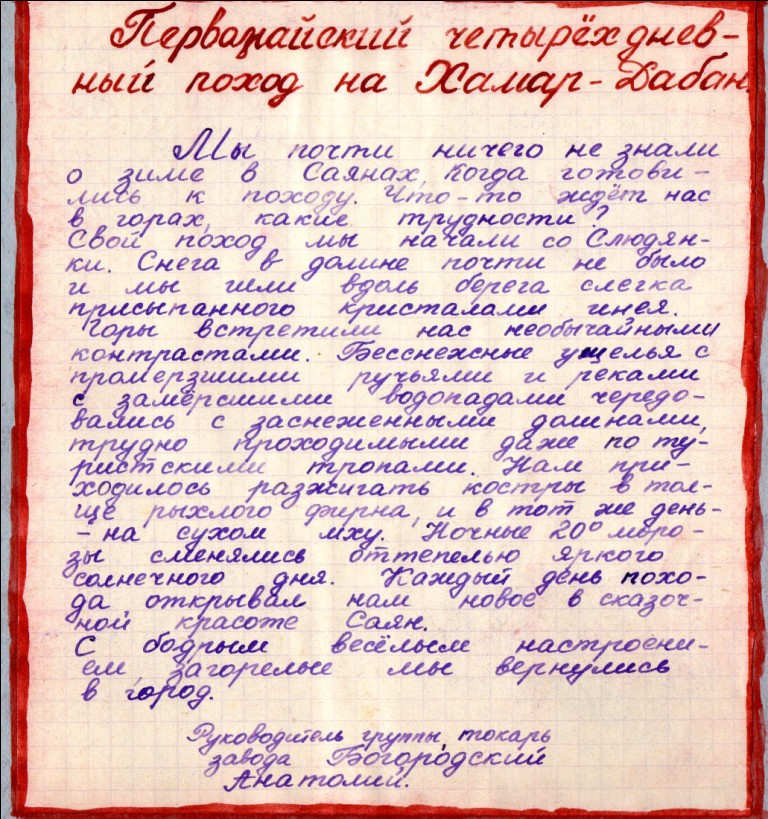 Первомайский четырёхднев-
ный поход на Хамар-Дабан.
Мы почти ничего не знали
о зиме в Саянах, когда готови-
лись к походу. Что-то ждёт нас
в горах, какие трудности?
Свой поход мы начали со Слюдян-
ки. Снега в долине почти не было
и мы шли вдоль берега слегка
присыпанного кристалами инея.
Горы встретили нас необычайными
контрастами. Бесснежные ущелья с
промерзшими ручьями и реками
с замёрсшими водопадами чередо-
вались с заснеженными долинами,
трудно проходимыми даже по ту-
ристскими тропами. Нам при-
ходилось разжигать костры в тол-
ще рыхлого фирна, и в тот же день-
- на сухом мху. Ночные 20° моро-
зы сменялись оттепелью яркого
солнечного дня. Каждый день похо-
да открывал нам новое в сказоч-
ной красоте Саян.
С бодрым весёлым настроени-
ем загорелые мы вернулись
в город.
Руководитель группы, токарь
завода Богородский
Анатолий.